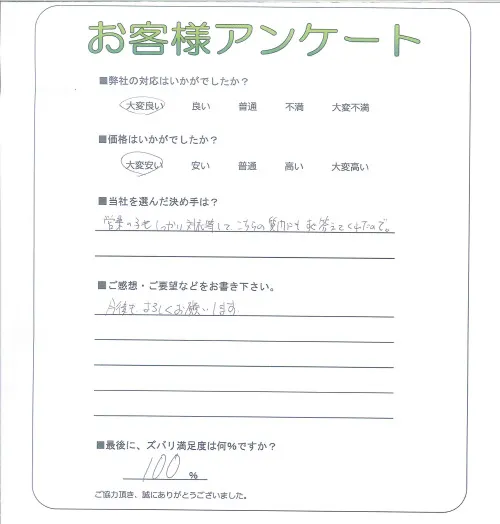 お客様アンケート
■弊社の対応はいかがでしたか？
大変良い 良い 普通 不満 大変不満
■価格はいかがでしたか？
大変安い 安い 普通 高い 大変高い
■当社を選んだ決め手は？
営業の しっかり対応して、こちらの質問にも 答えてくれたので。
■ご感想・ご要望などをお書き下さい。
よろしくお願いします
■最後に、ズバリ満足度は何％ですか？
100 %
ご協力頂き、誠にありがとうございました。